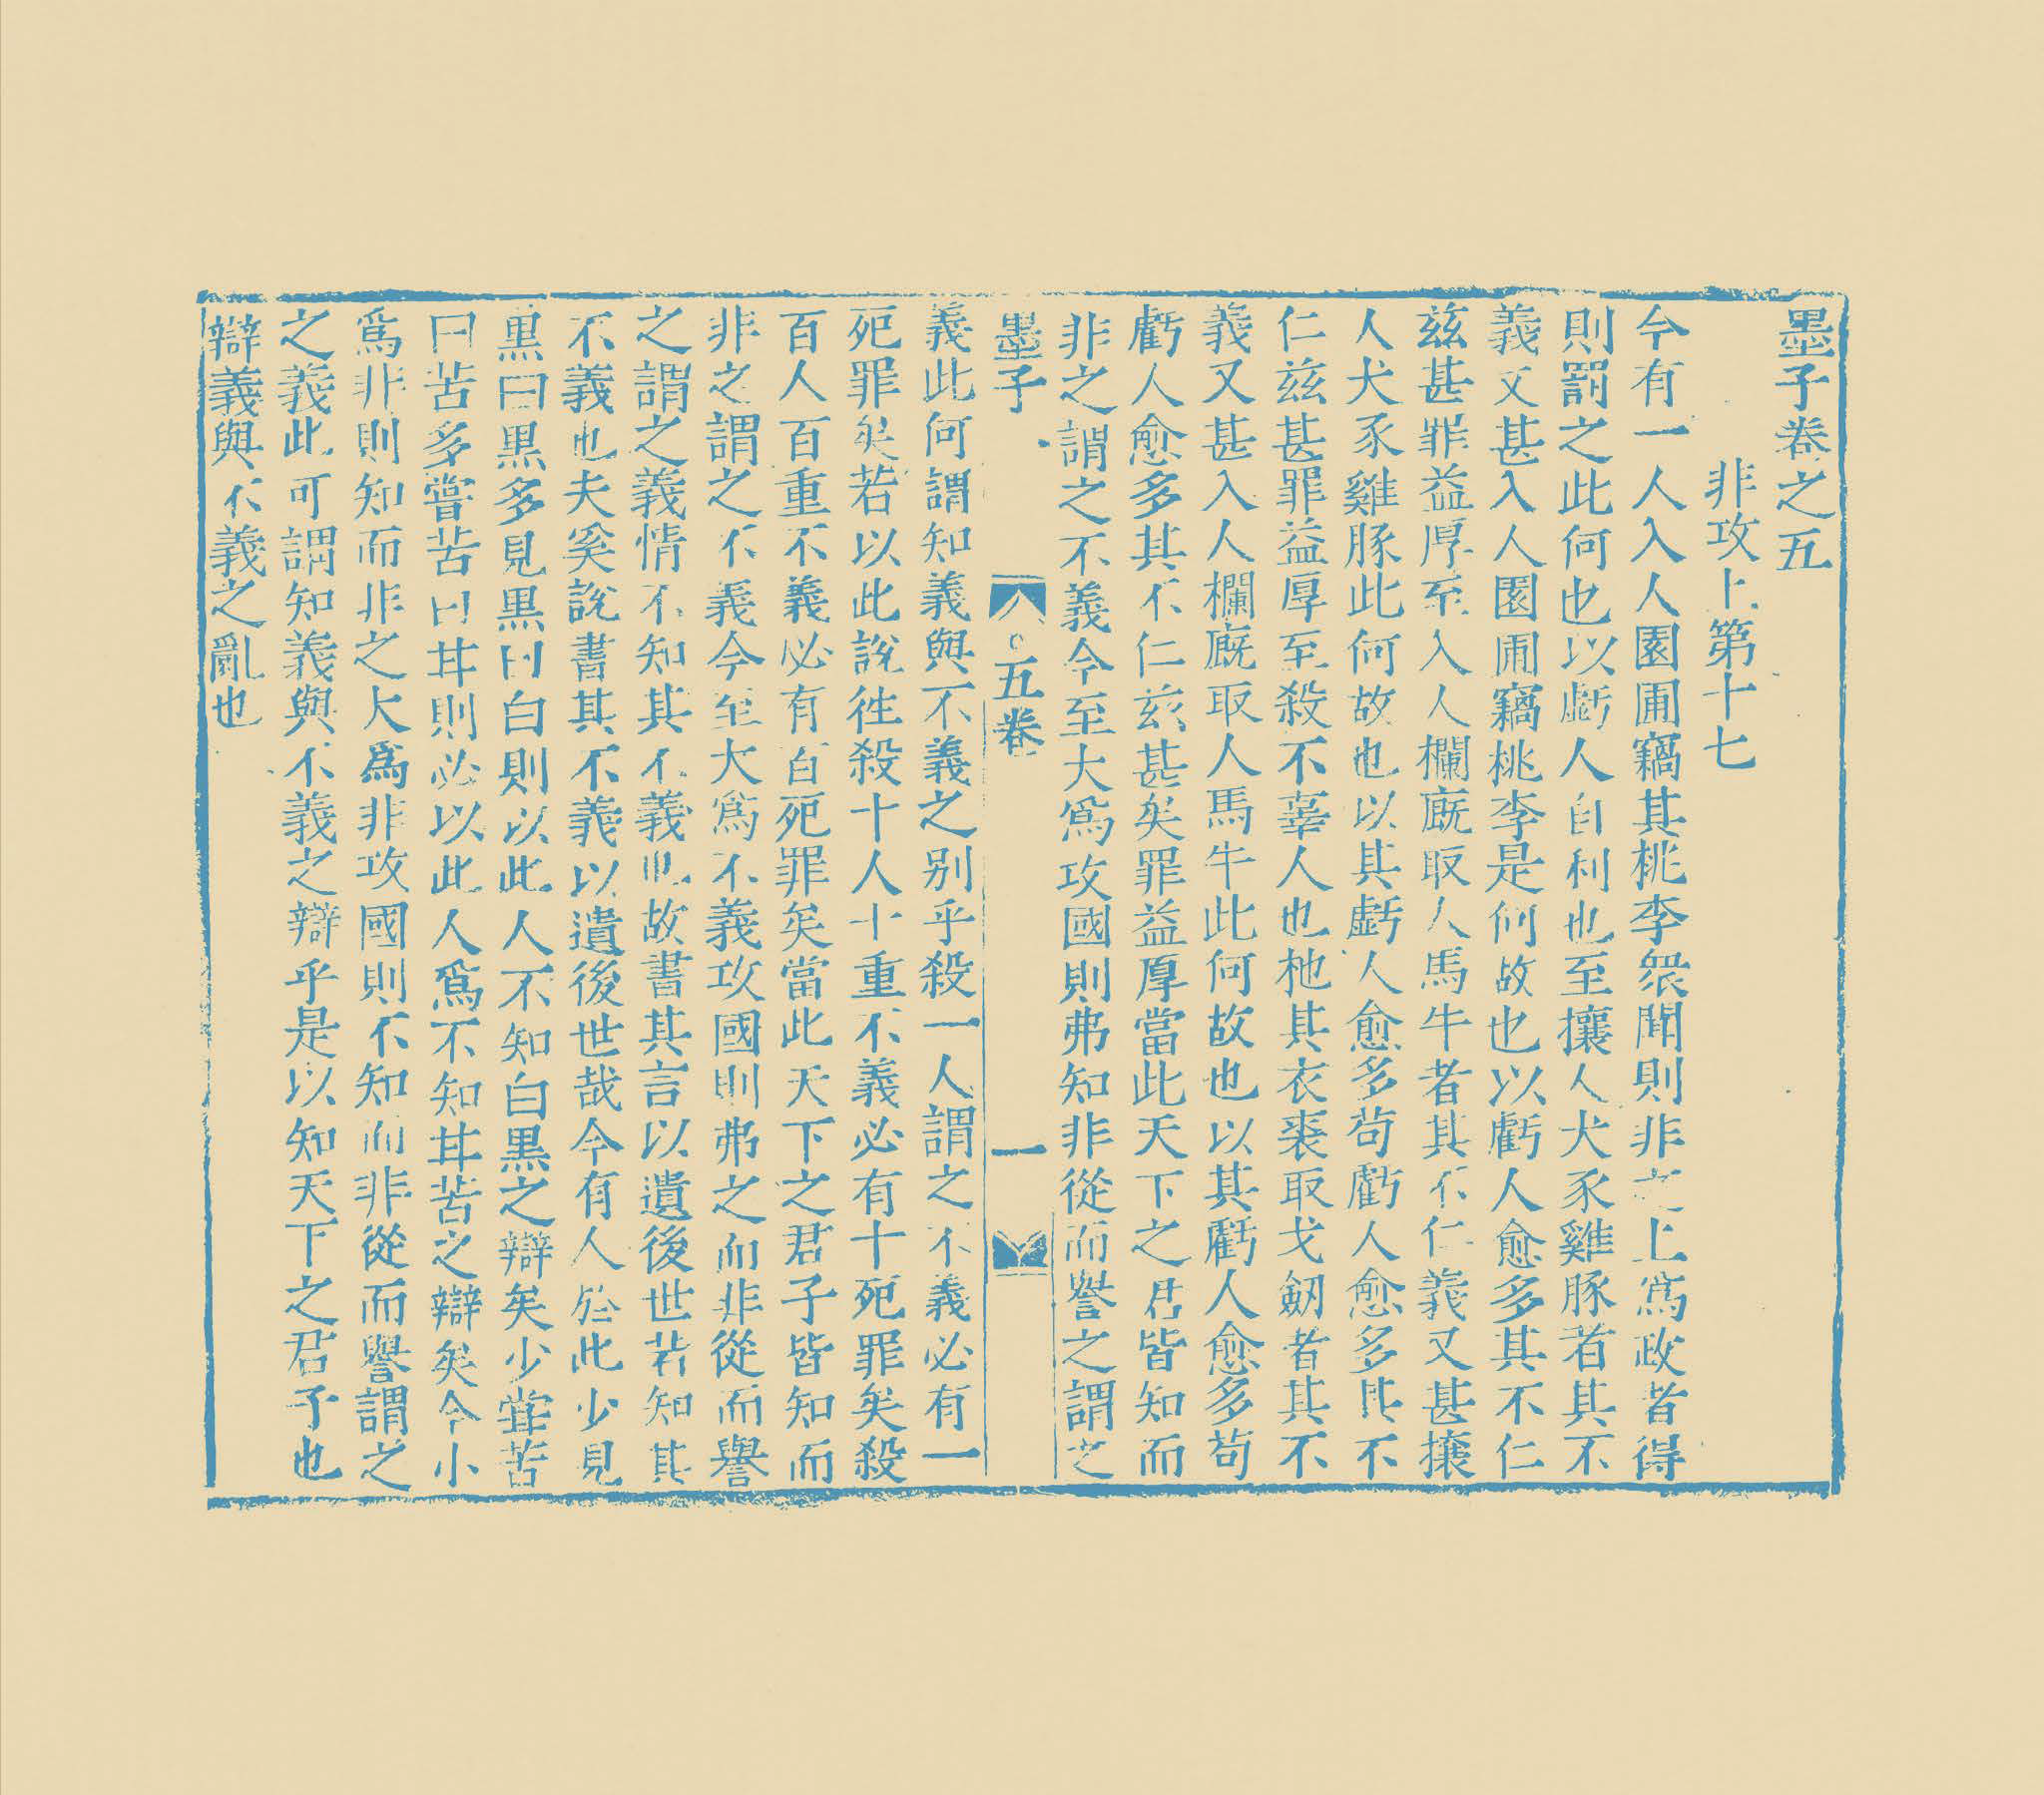 墨子卷之五
非攻上第十七
今有一人入人園圃竊其桃李衆聞則非之上爲政者得
則罰之此何也以虧人自利也至攘人犬豕雞豚者其不
義又甚入人園圃竊桃李是何故也以虧人愈多其不仁
茲甚罪益厚至入人欄廐取人馬牛者其不仁義又甚攘
人犬豕雞豚此何故也以其虧人愈多苟虧人愈多其不
仁茲甚罪益厚至殺不辜人也扡其衣裘取戈劒者其不
義又甚入人欄廐取人馬牛此何故也以其虧人愈多苟
虧人愈多其不仁茲甚矣罪益厚當此天下之君皆知而
非之謂之不義今至大爲攻國則弗知非從而譽之謂之
墨子 五卷 一
義此何謂知義與不義之别乎殺一人謂之不義必有一
死罪矣若以此說徃殺十人十重不義必有十死罪矣殺
百人百重不義必有百死罪矣當此天下之君子皆知而
非之謂之不義今至大爲不義攻國則弗之而非從而譽
之謂之義情不知其不義也故書其言以遺後世若知其
不義也夫奚說書其不義以遺後世哉今有人於此少見
黒曰黒多見黒曰白則以此人不知白黒之辯矣少嘗苦
曰苦多嘗苦曰甘則必以此人爲不知甘苦之辯矣今小
爲非則知而非之大爲非攻國則不知而非從而譽謂之
之義此可謂知義與不義之辯乎是以知天下之君子也
辯義與不義之亂也